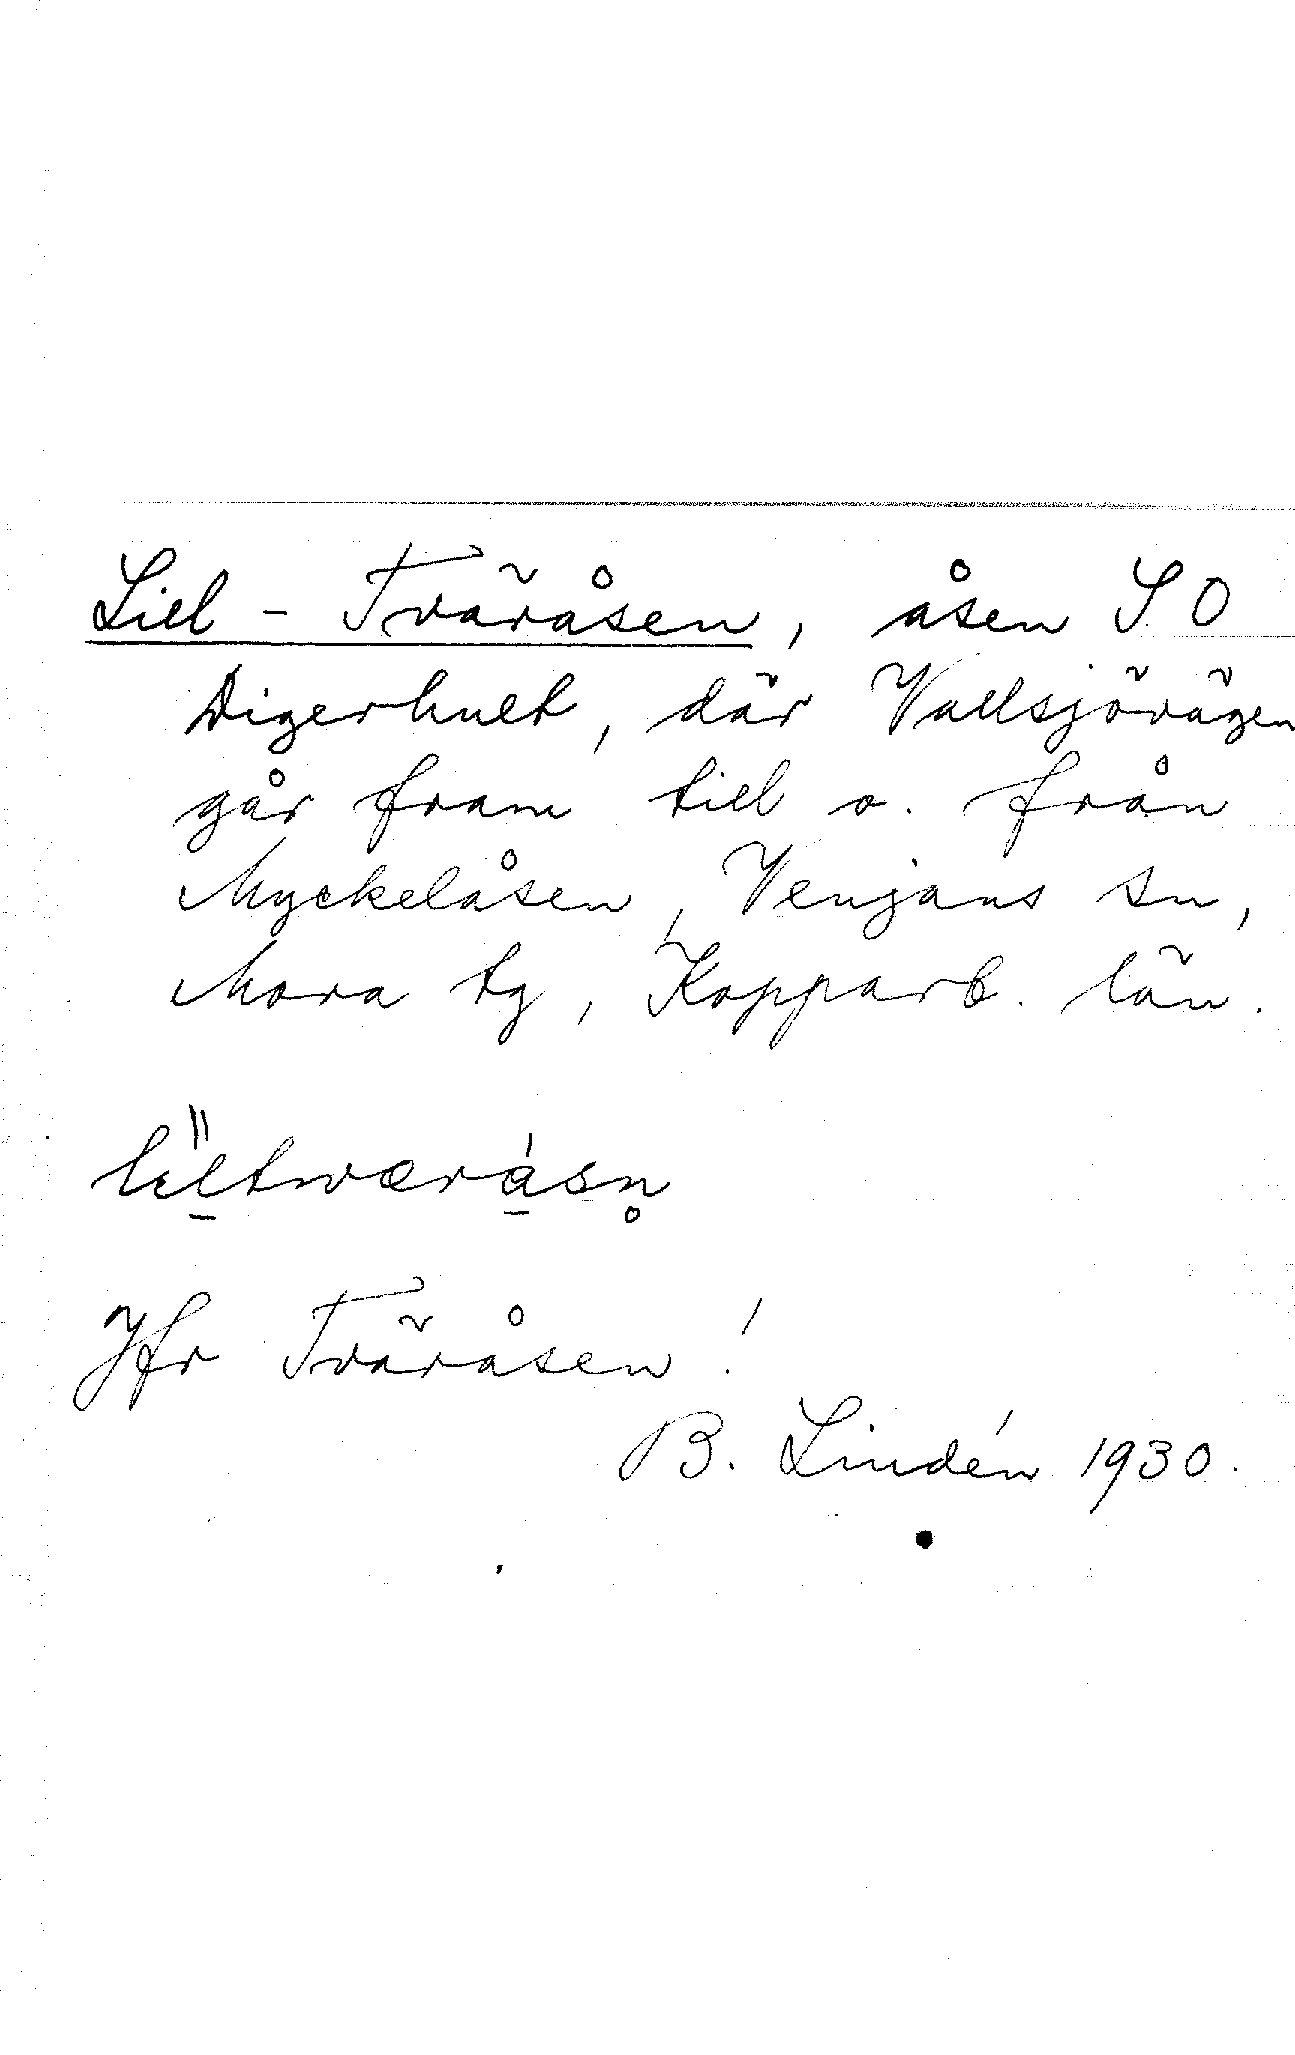 Lill-Tväråsen, åsen S O
Digerhult, där Vallsjövägen
går fram till o. från
Myckelåsen, Venjans sn,
Mora tg, Kopparb. län.
Jfr Tväråsen!
B. Lindén 1930.